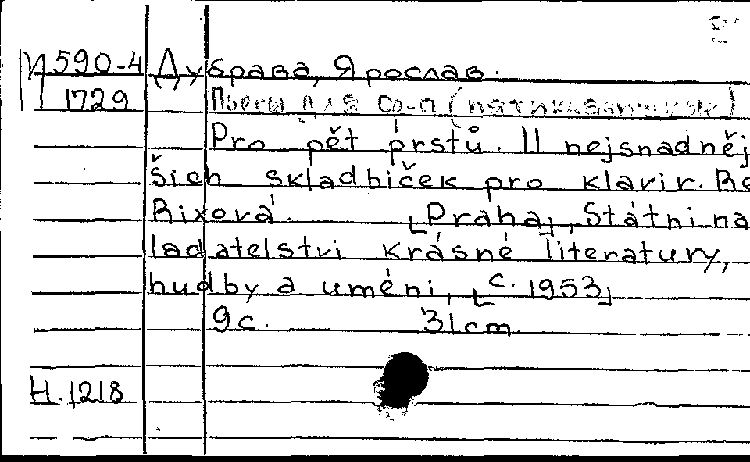 П590-4 Дубрава, Ярослав.
1729 Пьесы для Ф-п (пятиклавишные)
Pro pět prstů. 11 nejsnadněj
ších skladbiček pro klavír. Re
Rixová. [Praha], Státní na
kladatelství krásné literatury,
hudby a umění, [c. 1953]
9 с. 31 cm.
Н.1218